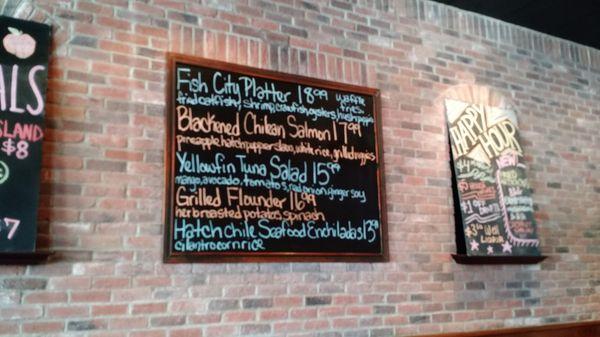 ALS
ISLAND
$8
Fish City Platter 18.99 waffle fries.
fried catfish, shrimp, crawfish, oysters, hushpuppies
Blackened Chilean Salmon 17.99
pineapple, hatch pepper slaw, white rice, grilled veggies
Yellowfin Tuna Salad 15.99
mango, avocado, tomatoes, red onion, ginger soy
Grilled Flounder 16.99
herb roasted potatos, spinach
Hatch chile Seafood Enchiladas 13.99
cilantro corn rice
HAPPY
HOUR
NEW
$1 OFF